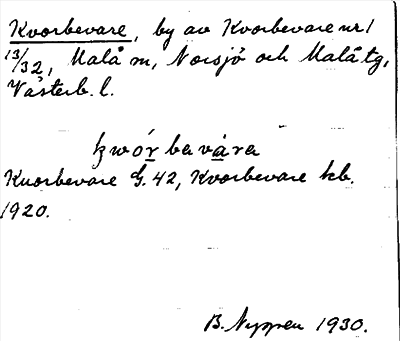 Kvorbevare, by av Kvorbevare nr 1
13/32, Malå m, Norsjö och Malå tg,
Västerb. l.
kwórbavára
Kuorbevare G. 42, Kvorbevare kb.
1920.
B. Nyppen 1930.